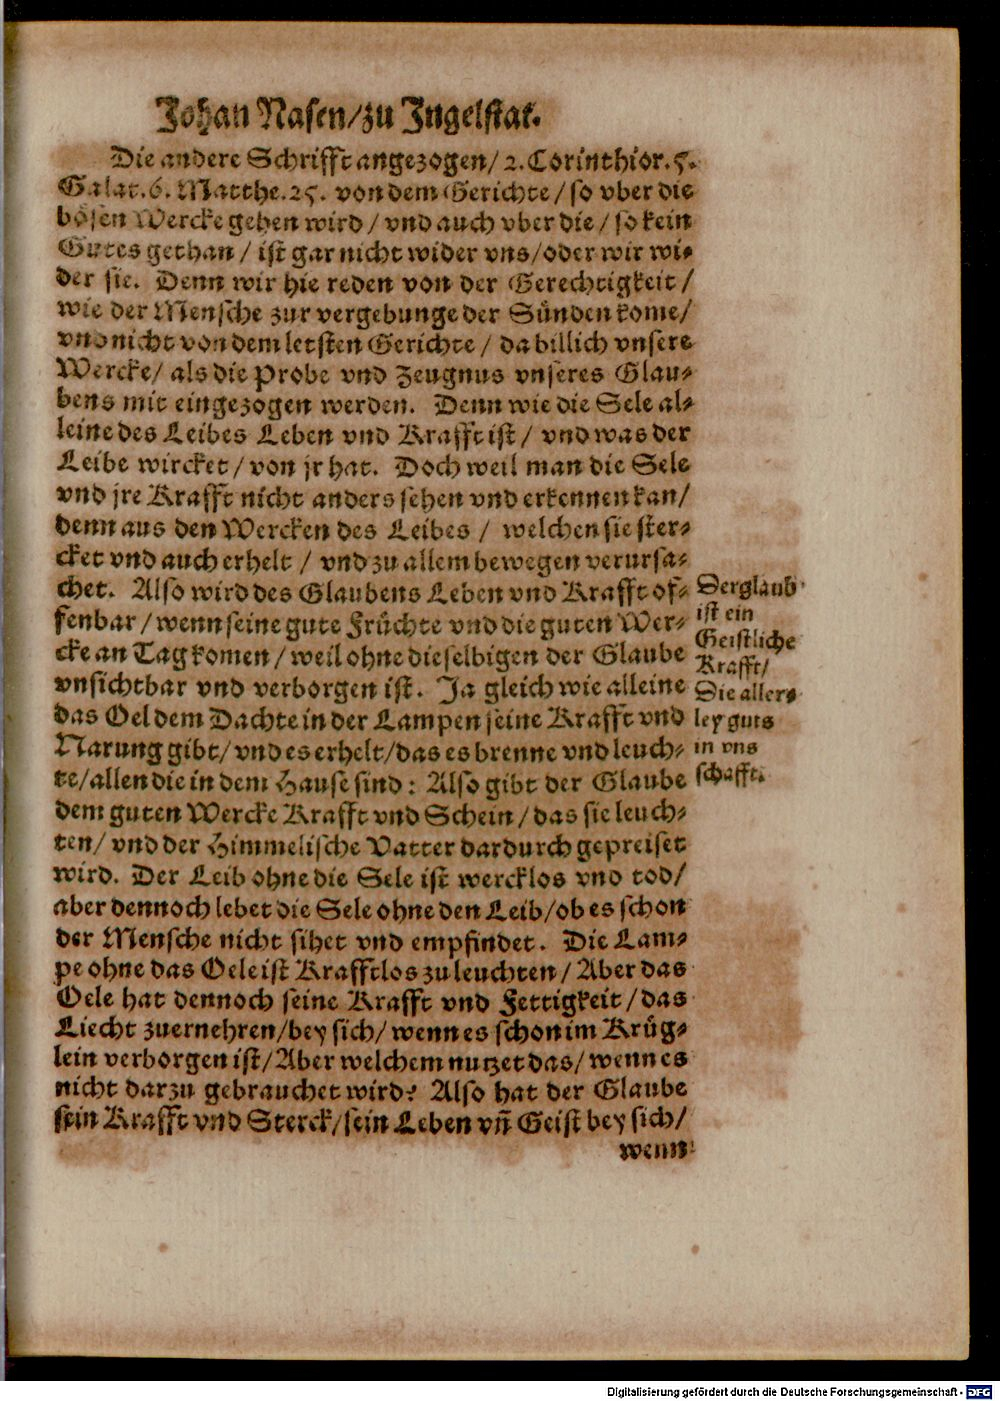 Johan Nasen/zu Jngelstat.
Die andere Schrifft angezogen/ 2. Corinthior. 5.
Galat. 6. Matthe. 25. von dem Gerichte/ so vber die
bösen Wercke gehen wird/ vnd auch vber die/ so kein
Gutes gethan/ ist gar nicht wider vns/ oder wir wi-
der sie. Denn wir hie reden von der Gerechtigkeit/
wie der Mensche zur vergebunge der Sünden kome/
vnd nicht von dem letsten Gerichte/ da billich vnsere
Wercke/ als die Probe vnd Zeugnus vnseres Glau-
bens mit eingezogen werden. Denn wie die Sele al-
leine des Leibes Leben vnd Krafft ist/ vnd was der
Leibe wircket/ von jr hat. Doch weil man die Sele
vnd jre Krafft nicht anders sehen vnd erkennen kan/
denn aus den Wercken des Leibes/ welchen sie ster-
cket vnd auch erhelt/ vnd zu allem bewegen verursa-
chet. Also wird des Glaubens Leben vnd Krafft of-
fenbar/ wenn seine gute Früchte vnd die guten Wer-
cke an Tag komen/ weil ohne dieselbigen der Glaube
vnsichtbar vnd verborgen ist. Ja gleich wie alleine
das Oel dem Dachte in der Lampen seine Krafft vnd
Narung gibt/ vnd es erhelt/ das es brenne vnd leuch-
te/ allen die in dem Hause sind: Also gibt der Glaube
dem guten Wercke Krafft vnd Schein/ das sie leuch-
ten/ vnd der Himmelische Vatter dardurch gepreiset
wird. Der Leib ohne die Sele ist wercklos vnd tod/
aber dennoch lebet die Sele ohne den Leib/ ob es schon
der Mensche nicht sihet vnd empfindet. Die Lam-
pe ohne das Oele ist Krafftlos zu leuchten/ Aber das
Oele hat dennoch seine Krafft vnd Fettigkeit/ das
Liecht zuernehren/ bey sich/ wenn es schon im Krüg-
lein verborgen ist/ Aber welchem nutzet das/ wenn es
nicht darzu gebrauchet wird? Also hat der Glaube
sein Krafft vnd Sterck/ sein Leben vñ Geist bey sich/
wenn
Der glaub
ist ein
Geistliche
Krafft/
Die aller-
ley guts
in vns
schafft.
Digitalisierung gefördert durch die Deutsche Forschungsgemeinschaft - DFG